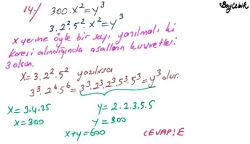 14) 300.x² = y³
Böylebik
3.2².5².x² = y³
x yerine öyle bir sayı yazılmalı ki
karesi alındığında asalların kuvvetleri
3 olsun.
x = 3.2².5² yazılırsa
3³.2⁶.5⁶ = 3³.2³.2³.5³.5³ = y³ olur.
x = 3.4.25 y = 2.2.3.5.5
x = 300 y = 300
x+y = 600 CEVAP: E